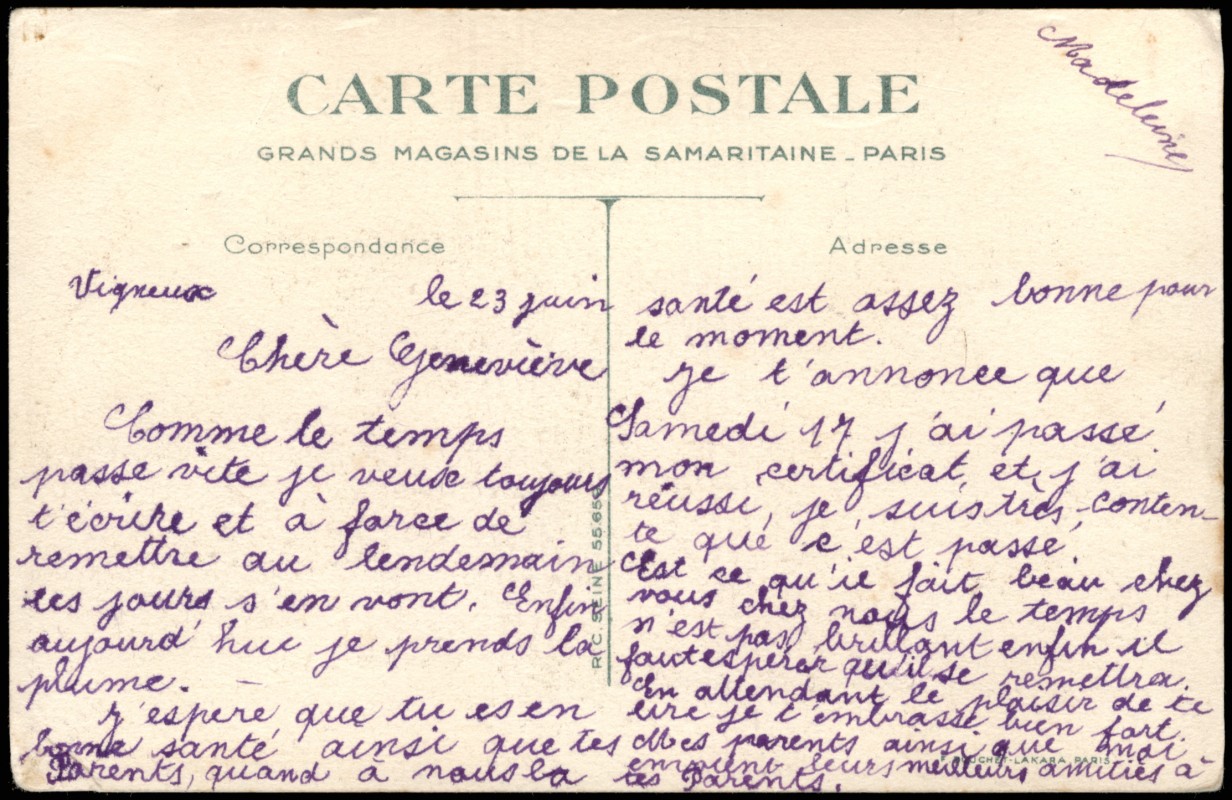 Madeleine
CARTE POSTALE
GRANDS MAGASINS DE LA SAMARITAINE - PARIS
Correspondance
Vigneux le 23 juin
Chère Geneviève
Comme le temps
passe vite je veux toujours
t'écrire et à force de
remettre au lendemain
les jours s'en vont. Enfin
aujourd'hui je prends la
plume. -
J'espère que tu es en
bonne santé ainsi que tes
Parents, quand à nous la
R.C. SEINE 55.65
Adresse
santé est assez bonne pour
le moment.
Je t'annonce que
Samedi 17 j'ai passé
mon certificat et j'ai
réussi, je suis très conten-
te que c'est passé.
Est ce qu'il fait beau chez
vous chez nous le temps
n'est pas brillant enfin il
faut espérer qu'il se remettra.
En attendant le plaisir de te
lire je t'embrasse bien fort.
Mes parents ainsi que moi
envoient leurs meilleurs amitiés à
tes Parents.
LAKARA PARIS